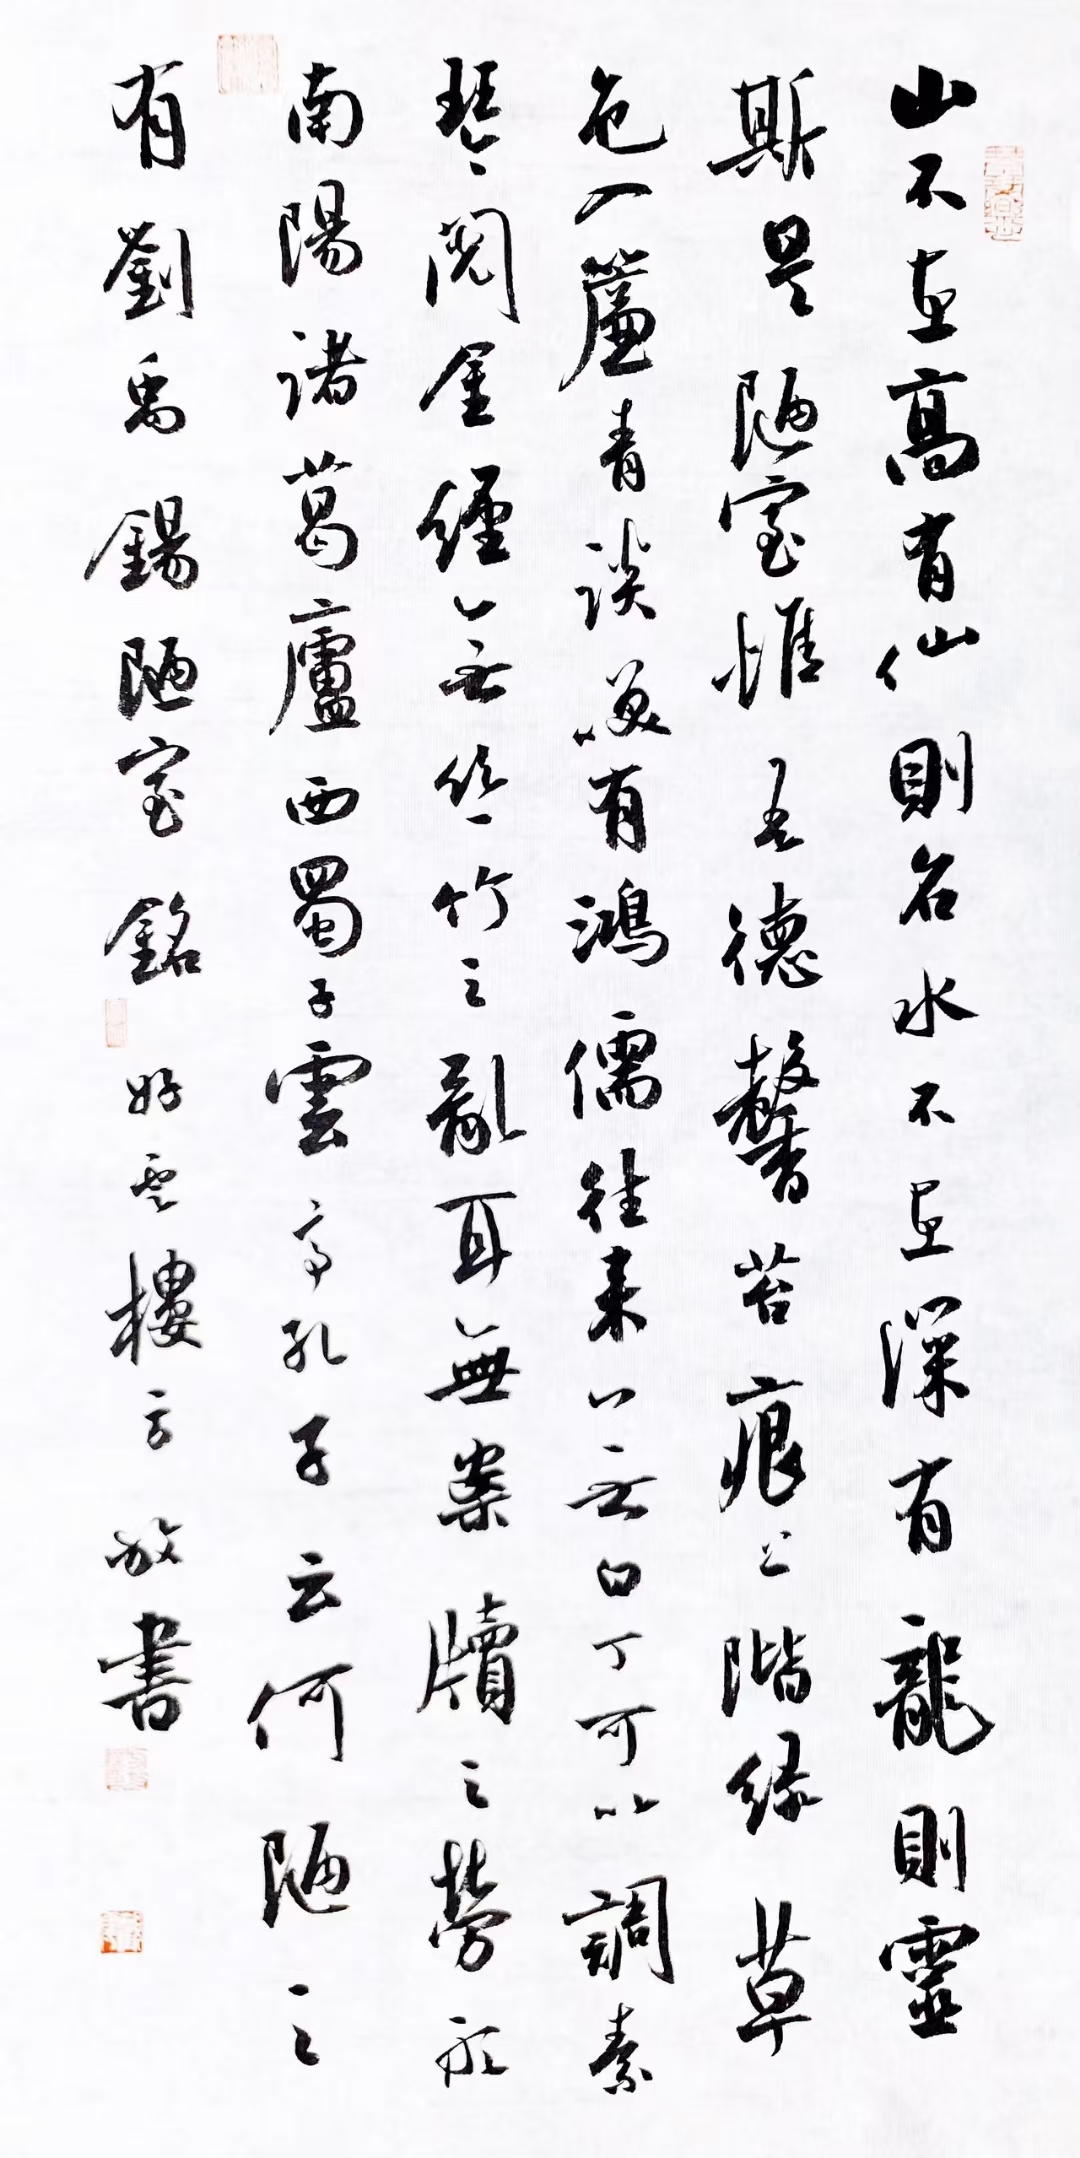 山不在高有仙則名水不在深有龍則靈
斯是陋室惟吾德馨苔痕上階綠草
色入簾青談笑有鴻儒往來無白丁可以調素
琴閱金經無絲竹之亂耳無案牘之勞形
南陽諸葛廬西蜀子雲亭孔子云何陋之
有劉禹錫陋室銘 好雲樓方放書